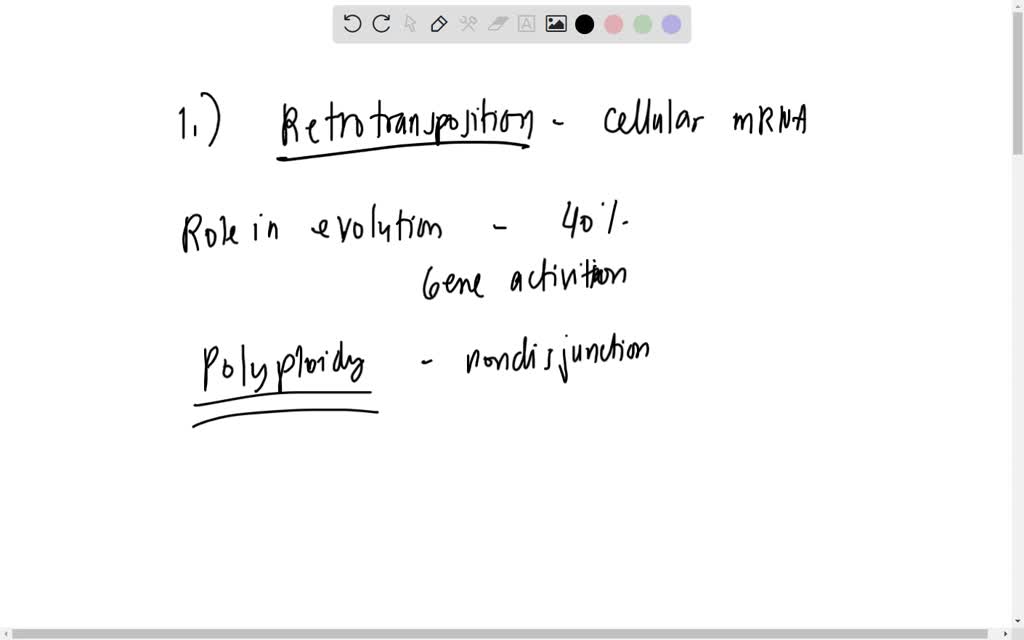 1.) Retrotransposition - cellular mRNA
Role in evolution - 40%
Gene activition
Polyploidy - nondisjunction